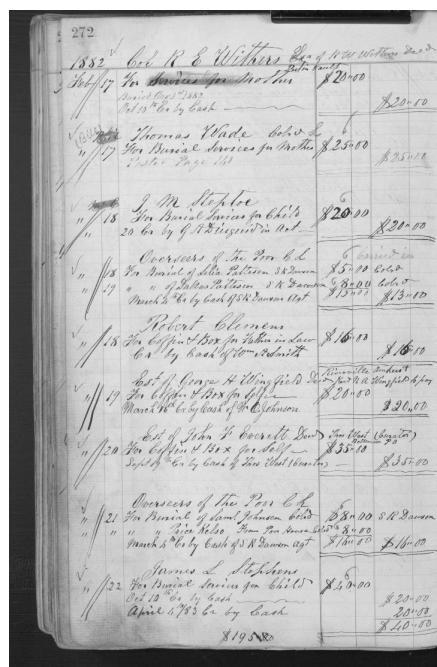 272
1882 Col R E Withers
Feb 17 For Services for Mother $20.00
Oct 10th Cr by Cash
$20.00
Thomas Wade Cold
" 17 For Burial Services for Mother $25.00
$25.00
J M Steptoe
" 18 For Burial Services for Child $20.00
" 20 Cr by Act $20.00
Overseers of the Poor C C
" 18 For Burial of Patteson S R Dawson $5.00 Cold
" 19 " " of Dallas Patteson S R Dawson $8.00 Cold
March 4th Cr by Cash of S R Dawson Agt $13.00 $13.00
Robert Clemens
" 18 For Coffin & Box for Father in Law $16.00
Cr by Cash of Smith $16.00
Est of George H Wingfield Decd
" 19 For Coffin & Box for Self $20.00
March 16th Cr by Cash of W C Johnson $20.00
Est of John F Everett Decd West (Curator)
" 20 For Coffin & Box for Self $35.00
Sept Cr by Cash of West (Curator) $35.00
Overseers of the Poor C C
" 21 For Burial of Saml Johnson Cold $8.00 S R Dawson
" " " Price Kelso From Poor House Cold $8.00
March 4th Cr by Cash of S R Dawson Agt $16.00 $16.00
James L Stephens
" 22 For Burial Services for Child $40.00
Oct 10th Cr by Cash $20.00
April 4 /83 Cr by Cash 20.00
$40.00
$195.00